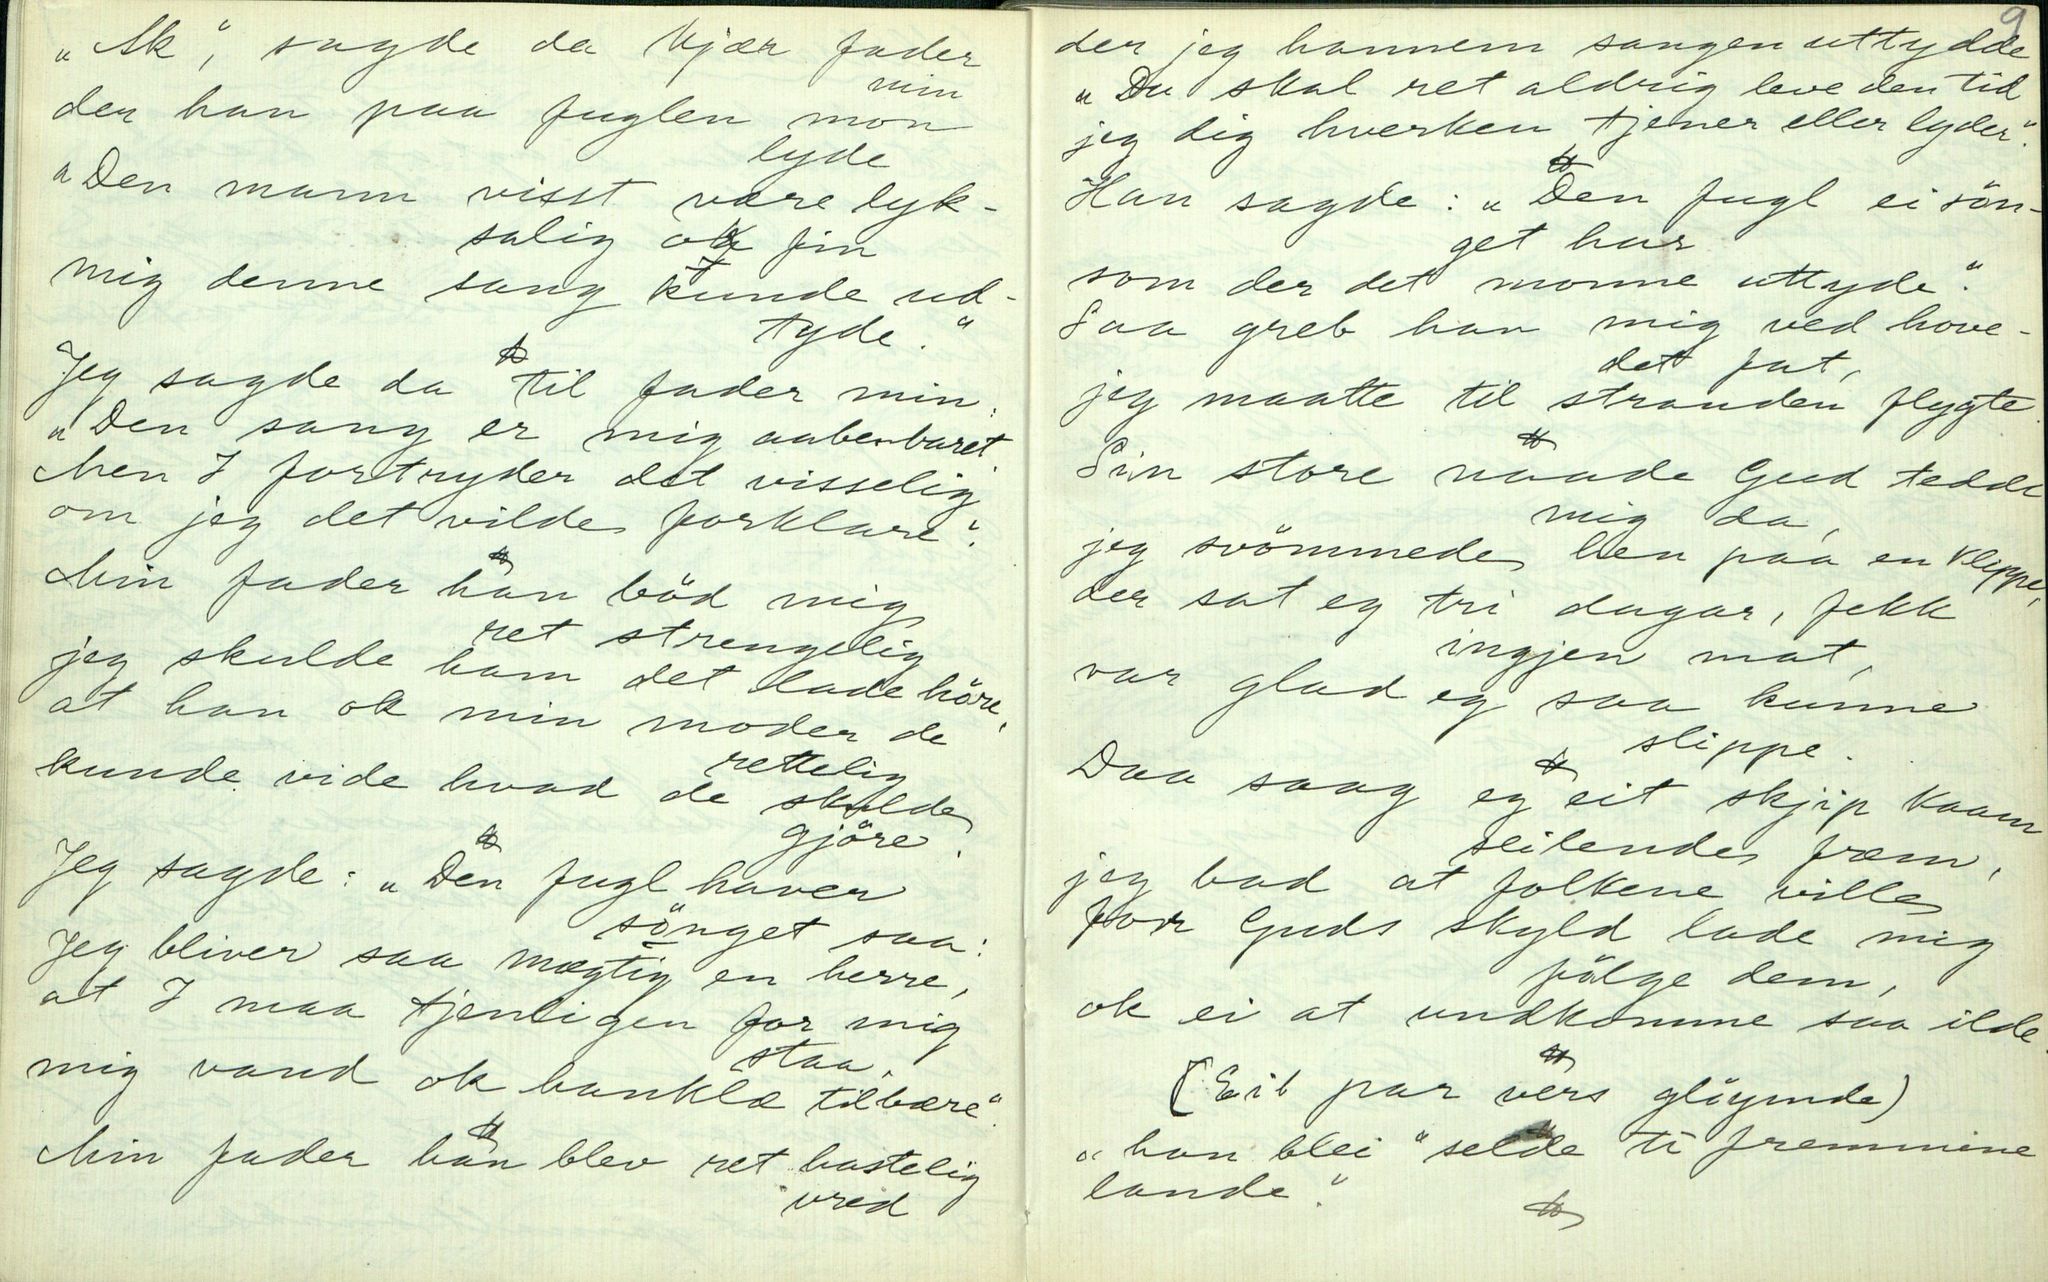 „Ak“, sagde da kjær fader
min
der han paa fuglen mon
lyde
„Den mann visst være lyk-
salig og fin
mig denne sang kunde ud-
tyde.“
Jeg sagde da til fader min:
„Den sang er mig aabenbaret.
Men I fortryder det visselig
om jeg det vilde forklare“.
Min fader han böd mig
ret strengelig
jeg skulde ham det lade höre,
at han ok min moder de
rettelig
kunde vide hvad de skulde
gjöre.
Jeg sagde: „Den fugl haver
sönget saa:
Jeg bliver saa mægtig en herre,
at I maa tjenligen for mig
staa,
mig vand ok hanklæ tilbære“.
Min fader han blev ret hastelig
vred
9
der jeg hannem sangen uttydde
„Du skal ret aldrig leve den tid
jeg dig hverken tjener eller lyder“.
Han sagde: „Den fugl ei sön-
get har
som der det monne uttyde“.
Saa greb han mig ved hove-
det fat,
jeg maatte til stranden flygte.
Sin store naade Gud tedde
mig da,
jeg svömmede hen paa en klippe,
der sat eg tri dagar, fekk
ingjen mat,
var glad eg saa kunne
slippe.
Daa saag eg eit skjip kaam
seilende frem,
jeg bad at folkene ville
for Guds skyld lade mig
fölge dem,
ok ei at undkomme saa ilde.
(Eit par vers glöymde)
„han blei “selde ti fremmine
lande“.